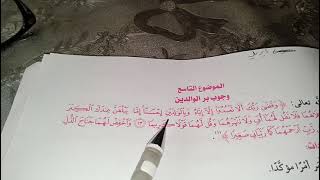 الموضوع التاسع
وجوب بر الوالدين
تعالى: ﴿وَقَضَىٰ رَبُّكَ أَلَّا تَعْبُدُوا إِلَّا إِيَّاهُ وَبِالْوَالِدَيْنِ إِحْسَانًا إِمَّا يَبْلُغَنَّ عِنْدَكَ الْكِبَرَ
فَلَا تَقُلْ لَهُمَا أُفٍّ وَلَا تَنْهَرْهُمَا وَقُلْ لَهُمَا قَوْلًا كَرِيمًا (٢٣) وَاخْفِضْ لَهُمَا جَنَاحَ الذُّلِّ
رَبِّ ارْحَمْهُمَا كَمَا رَبَّيَانِي صَغِيرًا﴾
أمرًا مؤكدًا